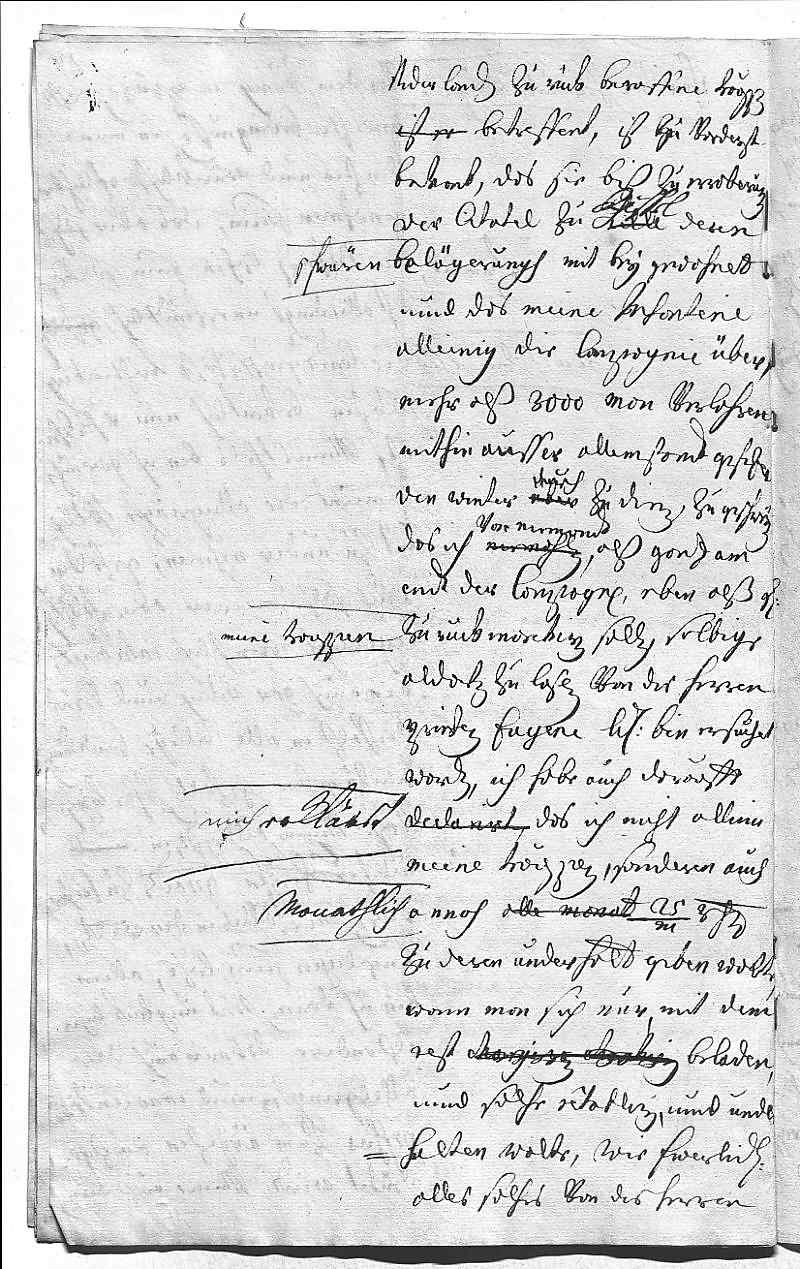 Niderlandt zurück beruffene troupp
ist er betreffent, ist zu Vorderst
bekant, das sie biß zu eroberung
der Citatel zu deren
schwären belägerungh mit bey gewohnet
undt das meine Infanterie
alleinig die Campagnie über,
mehr alß 3000 man Verlohren
mithin ausser allem standt gesetzet
den winter durch zu dienen, zu geschweigen
das ich Von niemandt, alß gantz am
endt der Campagne, eben alß
meine trouppen zurück marchiren sollen, selbige
aldortzu lassen Von des Herren
printzen Eugene Ld: bin ersuchet
worden, ich habe auch darauff
mich erklärt declarirt, das ich nicht allein
meine trouppen, sonderen auch
Monathlich annoch alle monat 25 m rthr
zu deren underhalt geben wolte,
wann man sich nur mit dem
rest beladen,
undt solche etabliren, undt under
halten wolte, wie
alles solches Von des Herren